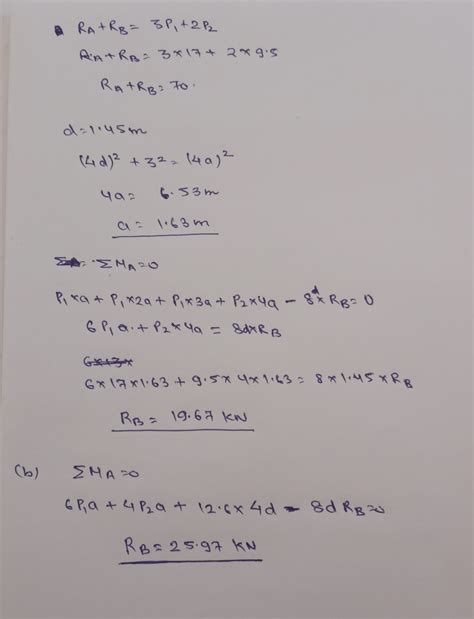 RA+RB= 3P1+2P2
RA+RB= 3×17+ 2×9.5
RA+RB=70.
d=1.45m
(4d)² + 3² = (4a)²
4a= 6.53m
a= 1.63m
ΣMA=0
P1×a+ P1×2a+ P1×3a+ P2×4a - 8d×RB=0
6P1a.+P2×4a = 8d×RB
6×17×1.63 + 9.5×4×1.63= 8×1.45×RB
RB= 19.67 KN
(b) ΣMA=0
6P1a+4P2a + 12.6×4d - 8dRB=0
RB=25.97 KN